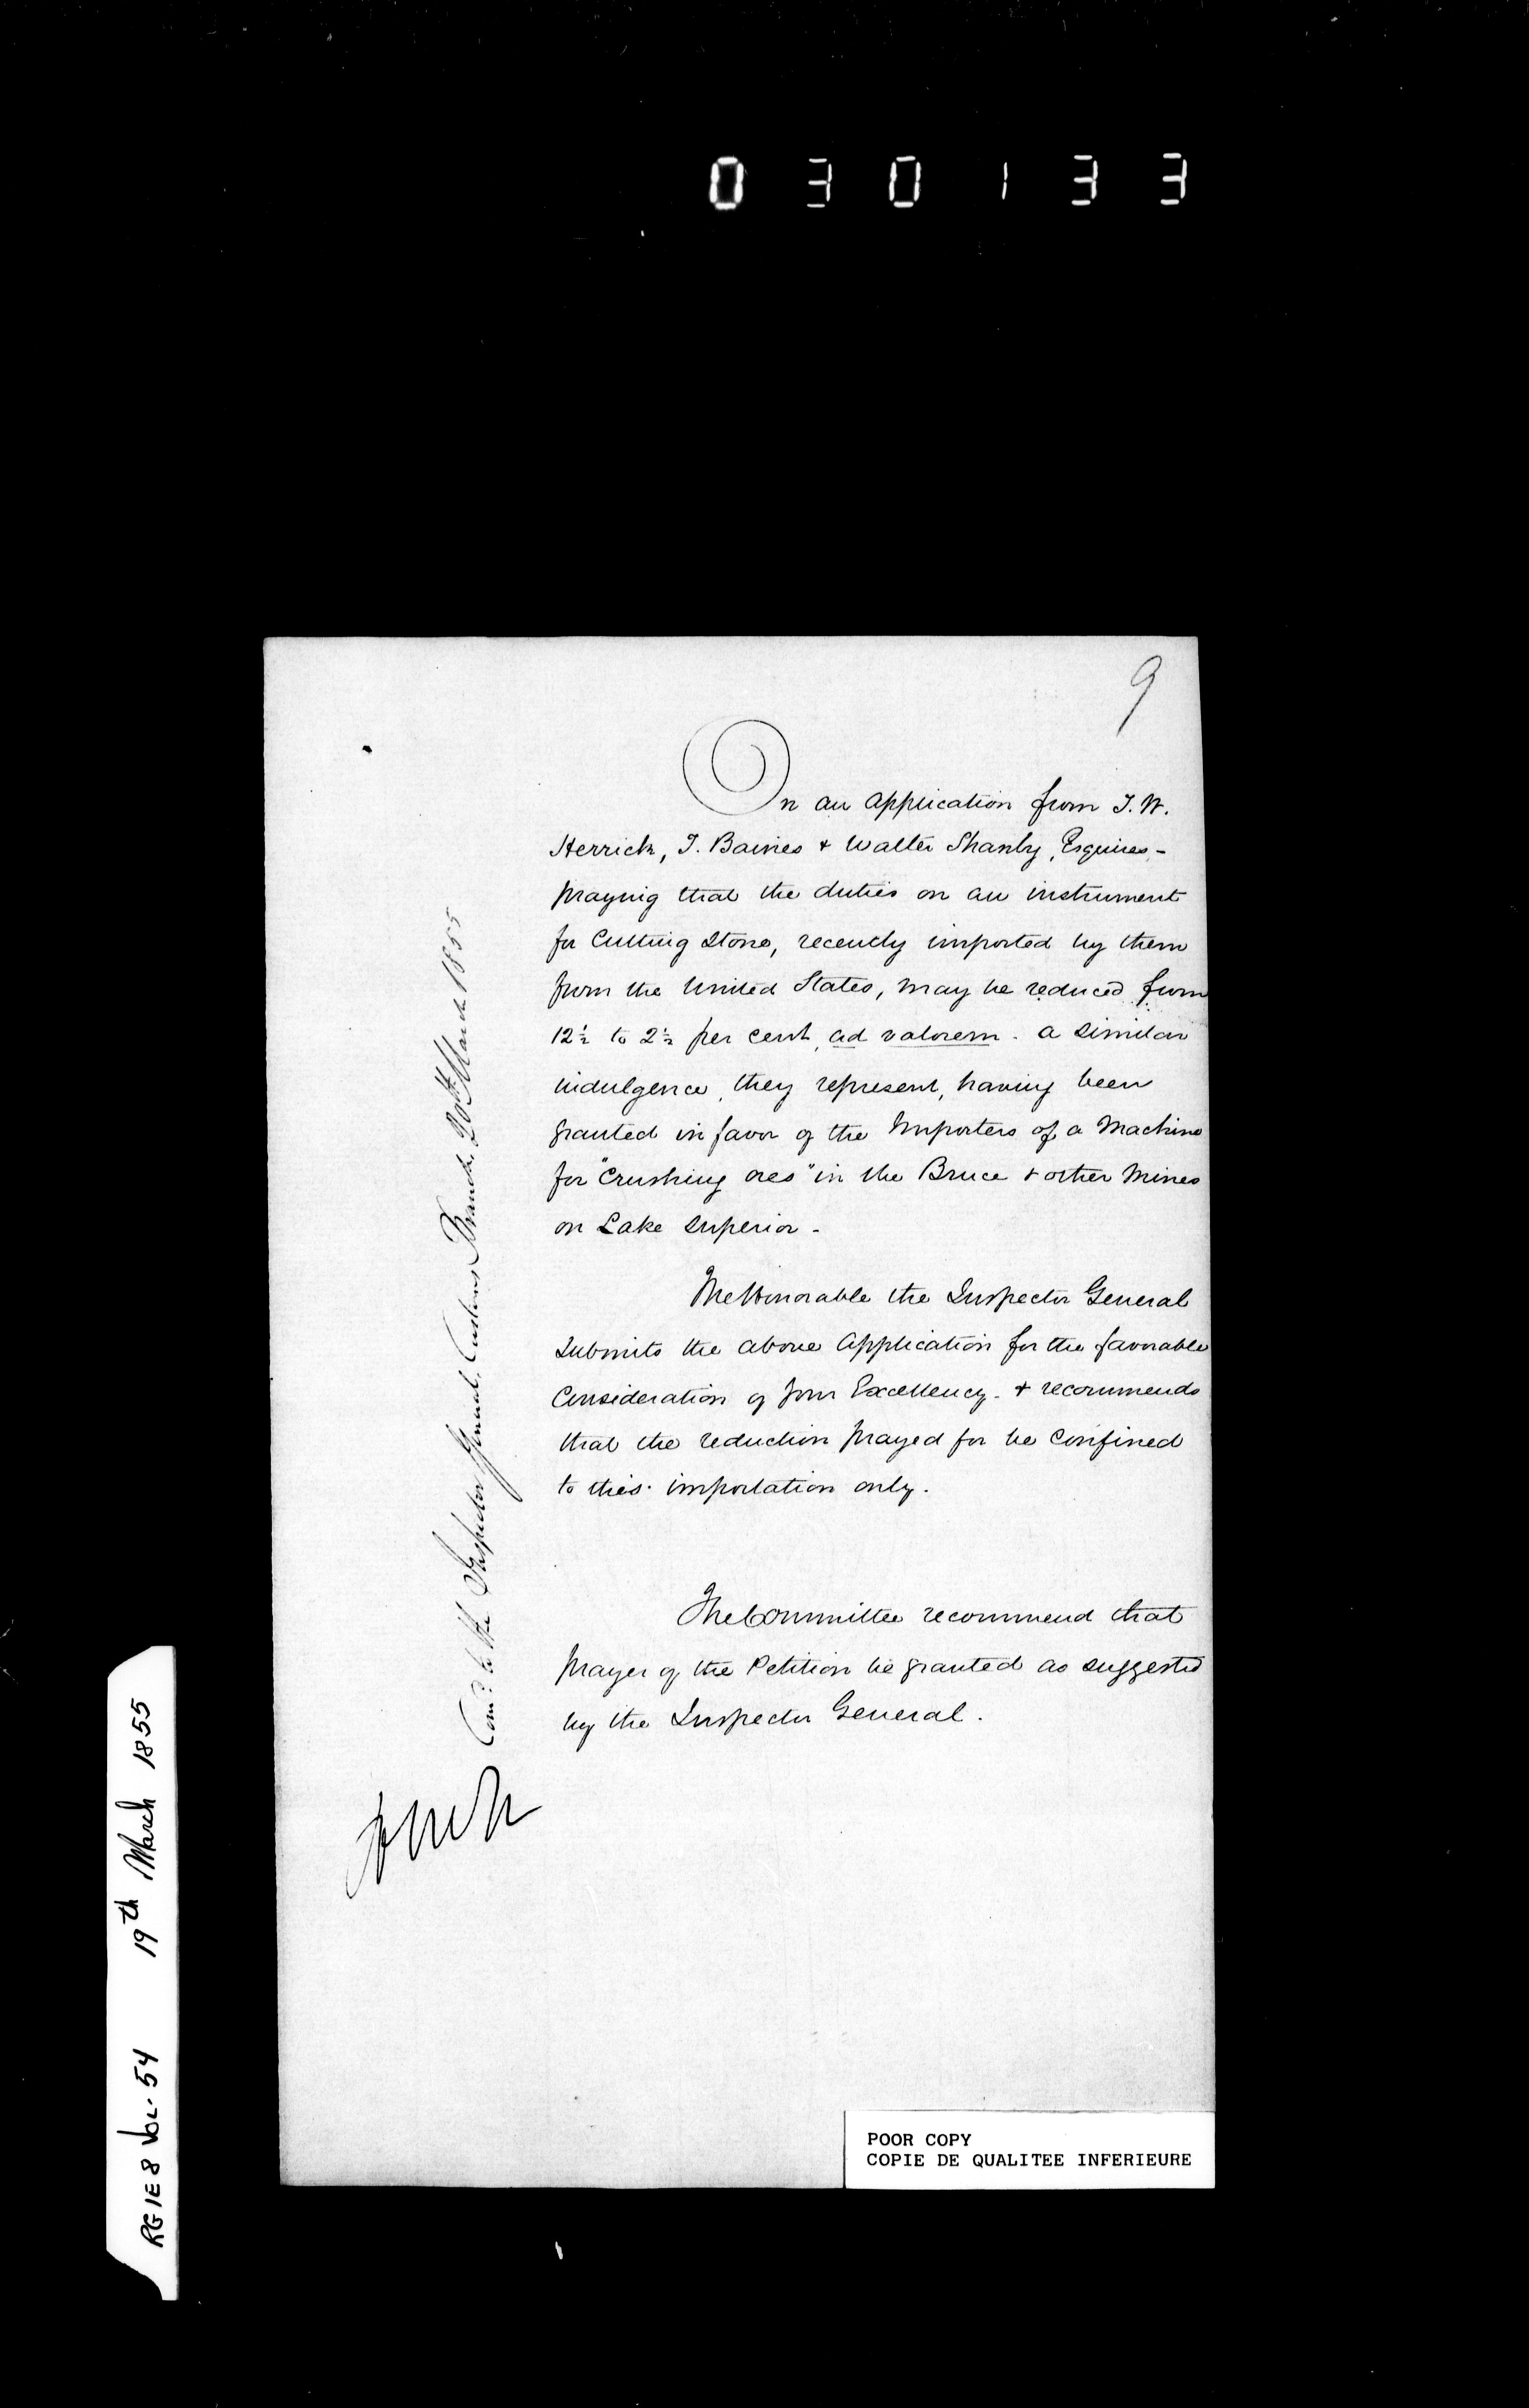 030133
9
On an application from T. W.
Herrick, T. Baines & Walter Shanly, Esquires -
praying that the duties on an instrument
for Cutting Stone, recently imported by them
from the United States, may be reduced from
12½ to 2½ per cent, ad valorem. a similar
indulgence, they represent, having been
granted in favor of the Importers of a Machine
for "Crushing ores" in the Bruce & other Mines
on Lake Superior -
The Honorable the Inspector General
submits the above Application for the favorable
Consideration of Your Excellency - & recommends
that the reduction prayed for be confined
to this importation only.
The Committee recommend that
prayer of the Petition be granted as suggested
by the Inspector General.
Comd. to the Inspector General, Customs Branch, 20th March 1855
RG 1 E 8 Vol. 54 19th March 1855
POOR COPY
COPIE DE QUALITEE INFERIEURE